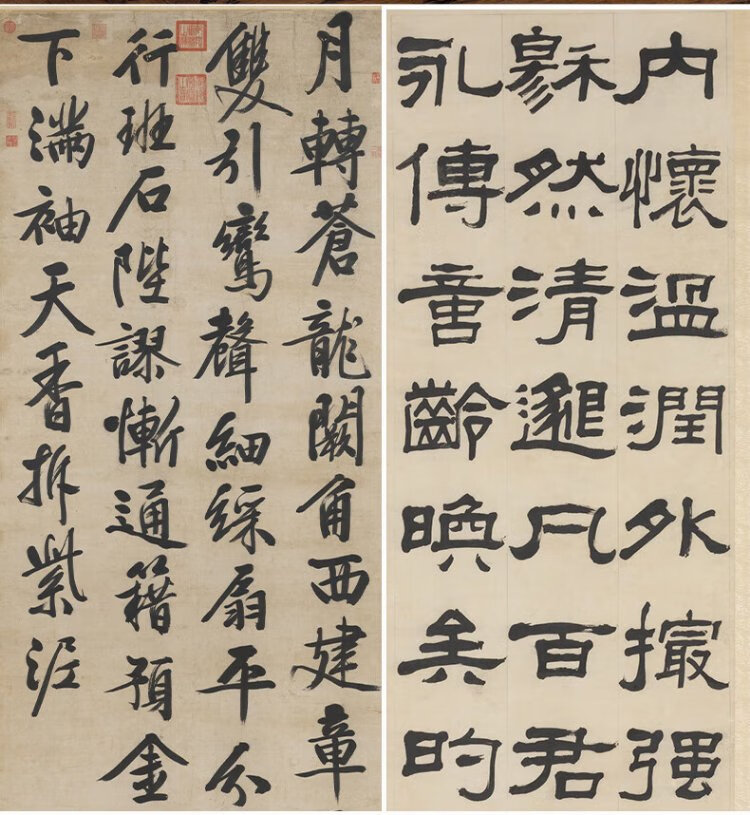 內懷溫潤外撮强
穆然清邈凡百君
永傳啻齡矣旳
月轉蒼龍闕角西建章
雙引鸞聲細綵扇平分
行班石陛謬慚通籍預金
下滿袖天香拆紫泥